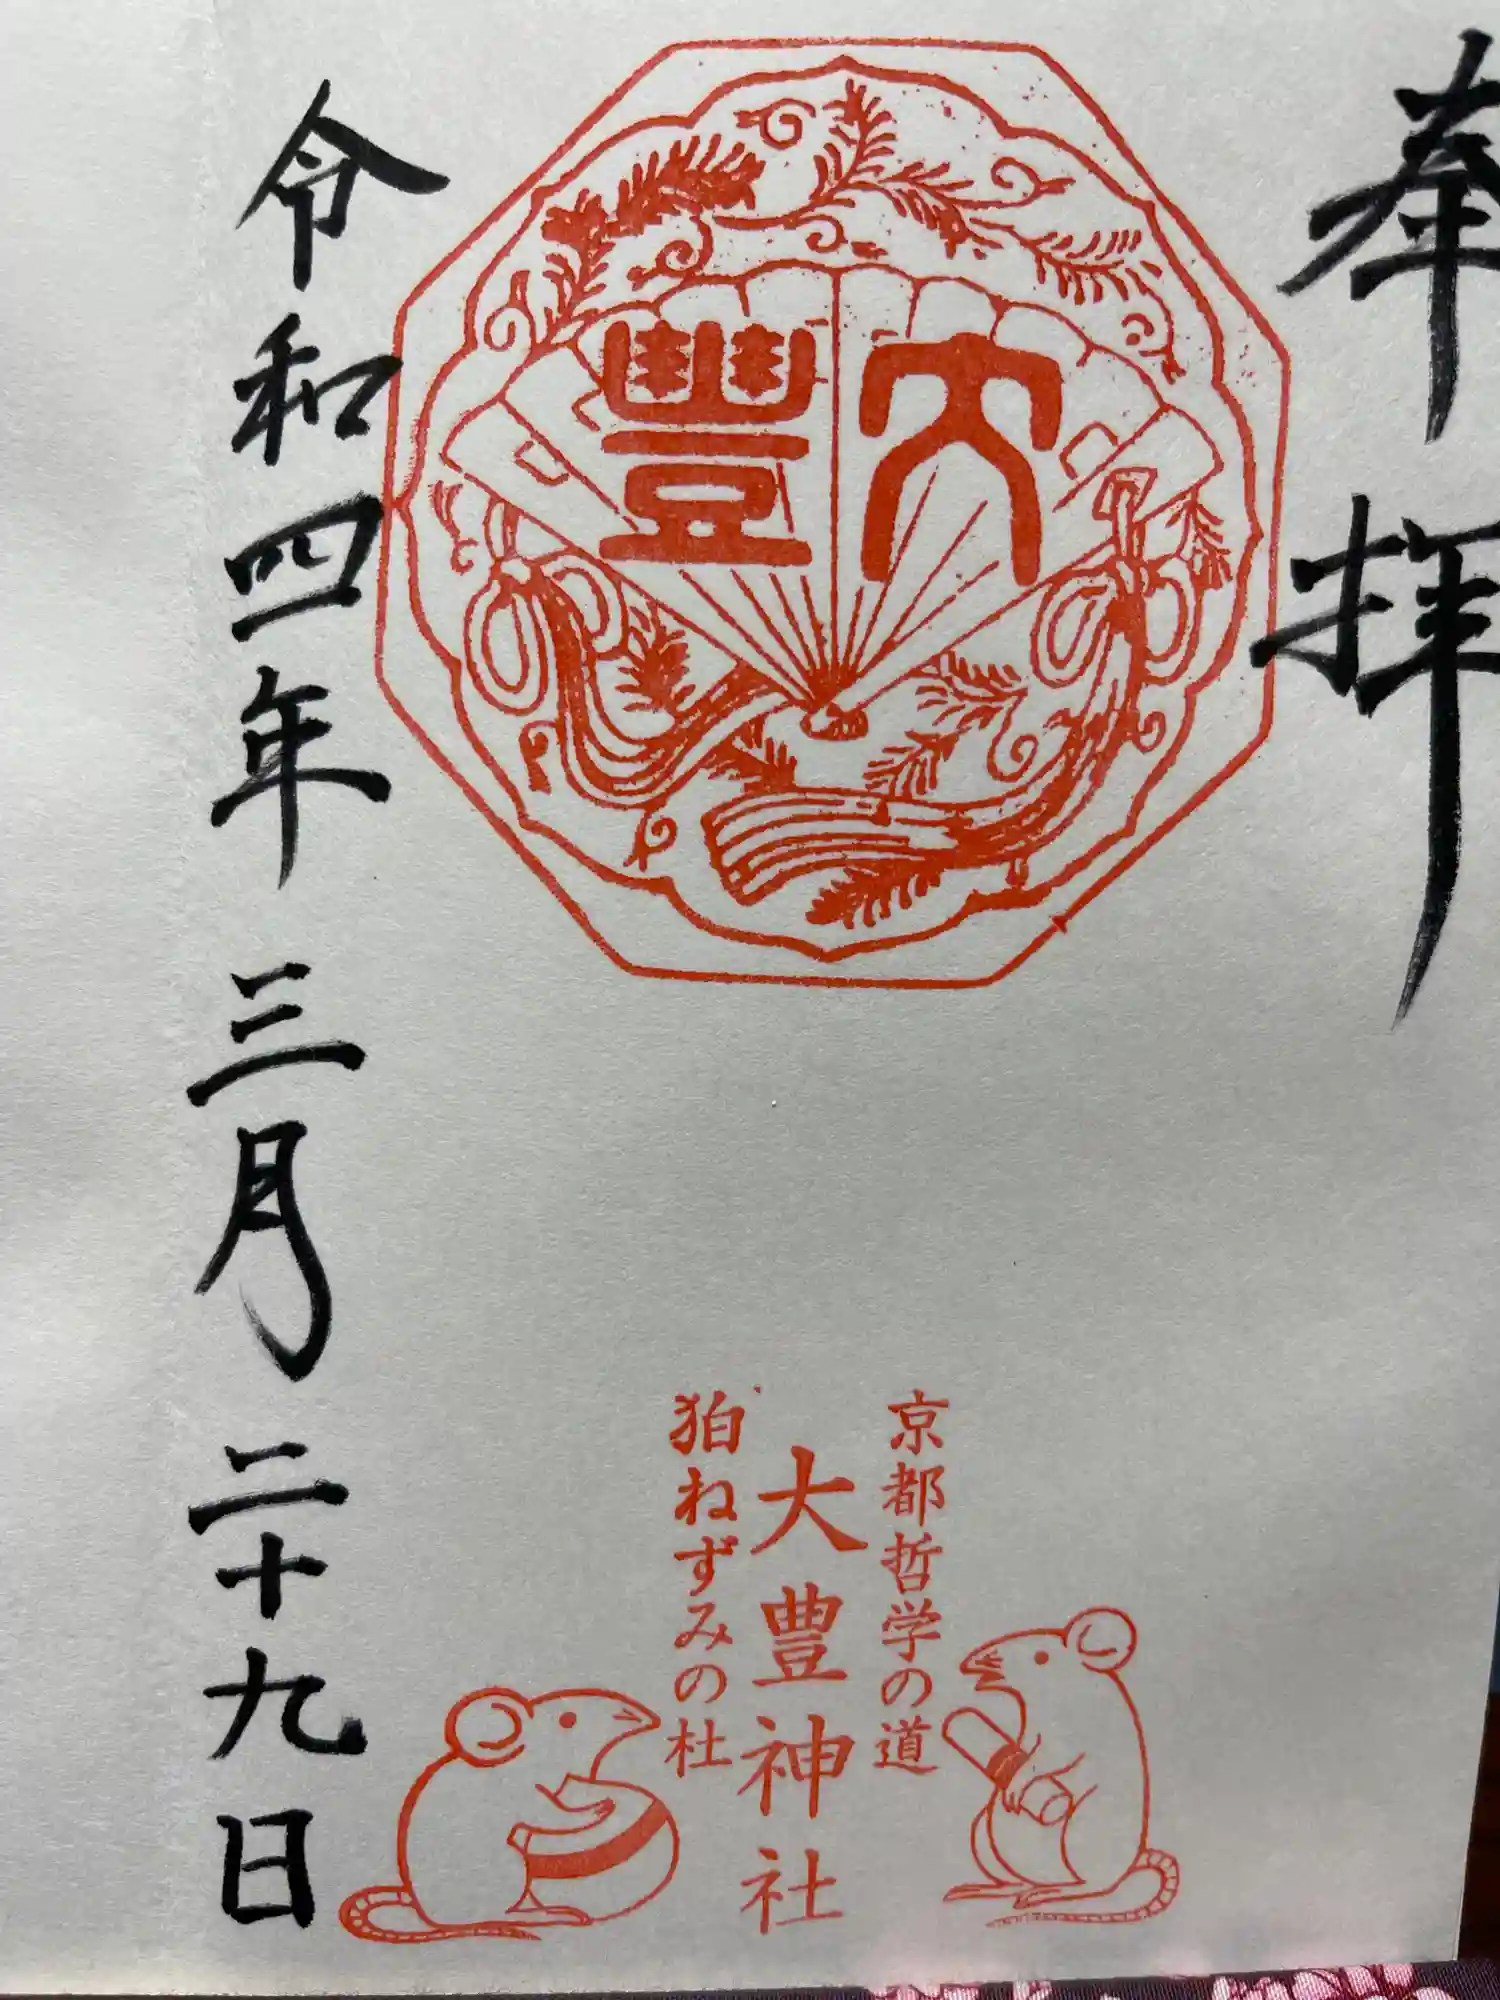 奉拝
大豊
京都哲学の道
大豊神社
狛ねずみの杜
令和四年 三月 二十九日